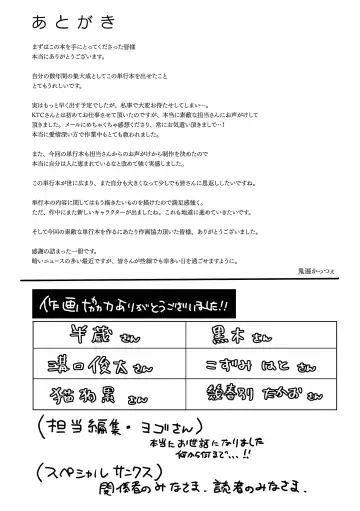 あとがき
まずはこの本を手にとってくださった皆様
本当にありがとうございます。
自分の数年間の集大成としてこの単行本を出せたこと
とてもうれしいです。
実はもっと早く出す予定でしたが、私事で大変お待たせしてしまい…。
KTCさんとは初めてお仕事させて頂いたのですが、本当に素敵な担当さんにお声がけして
頂きました。メールにめちゃくちゃ感想くださり、常にお気遣い頂きまして…!
本当に愛情深い方で作業中もとても救われました。
また、今回の単行本も担当さんからのお声がけから制作を決めたので
本当に自分は人に恵まれているなと改めて強く実感しました。
この単行本が世に広まり、また自分も大きくなって少しでも皆さんに恩返ししたいですね。
単行本の内容に関してはもう描きたいものを描けたので満足感強く。
ただ、作中にまた新しいキャラクターが出ましたね。これも地道に進めていきたいです。
そして今回の素敵な単行本を作るにあたり作画協力頂いた皆様、ありがとうございました。
感謝の詰まった一冊です。
暗いニュースの多い最近ですが、皆さんが些細でも幸多い日を過ごせますように。
鬼遍かっつぇ
作画協力ありがとうございました!!
半蔵さん
黒木さん
溝口俊太さん
こずみ はとさん
猫狗黒さん
たかおさん
(担当編集・ヨゴさん)
本当にお世話になりました
何から何まで...!!
(スペシャルサンクス)
関係者のみなさま、読者のみなさま